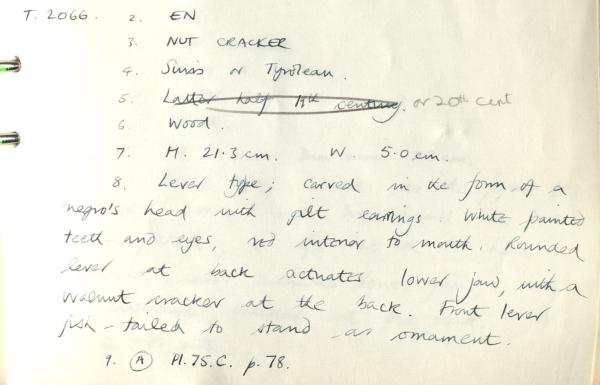 T. 2066. 2. EN
3. NUT CRACKER
4. Swiss or Tyrolean.
5. Latter half 19th century. or 20th cent
6. Wood.
7. H. 21.3 cm. W. 5.0 cm.
8. Lever type; carved in the form of a
negro's head with gilt earrings. White painted
teeth and eyes, red interior to mouth. Rounded
lever at back actuates lower jaw, with a
walnut cracker at the back. Front lever
fish-tailed to stand as ornament.
9. A Pl. 75.C. p. 78.